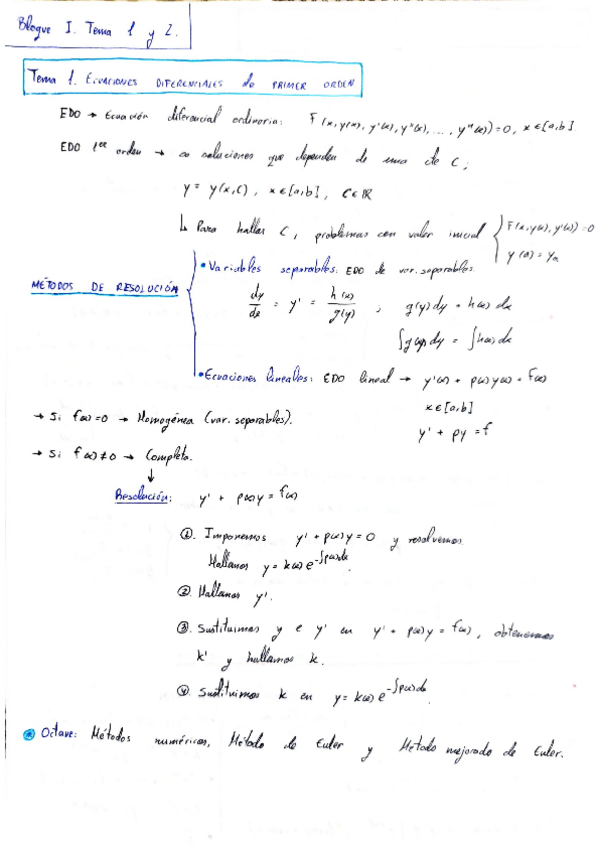 Bloque I. Tema 1 y 2.
Tema 1. ECUACIONES DIFERENCIALES de PRIMER ORDEN
EDO → Ecuación diferencial ordinaria: F(x, y(x), y'(x), y''(x), ..., yⁿ(x)) = 0, x ∈ [a,b]
EDO 1er orden → ∞ soluciones que dependen de una cte C;
y = y(x,C), x ∈ [a,b], C ∈ ℝ
↳ Para hallar C, problemas con valor inicial { F(x, y(x), y'(x)) = 0
y(a) = yₐ
MÉTODOS DE RESOLUCIÓN
• Variables separables: EDO de var. separables
dy/dx = y' = h(x)/g(y) ; g(y) dy = h(x) dx
∫g(y) dy = ∫h(x) dx
• Ecuaciones lineales: EDO lineal → y'(x) + p(x) y(x) = f(x)
x ∈ [a,b]
y' + py = f
→ Si f(x) = 0 → Homogénea (var. separables).
→ Si f(x) ≠ 0 → Completa.
↓
Resolución: y' + p(x)y = f(x)
①. Imponemos y' + p(x)y = 0 y resolvemos
Hallamos y = k(x) e^-∫p(x)dx
②. Hallamos y'.
③. Sustituimos y e y' en y' + p(x)y = f(x), obtenemos
k' y hallamos k.
④. Sustituimos k en y = k(x) e^-∫p(x)dx
Octave: Métodos numéricos, Método de Euler y Método mejorado de Euler.